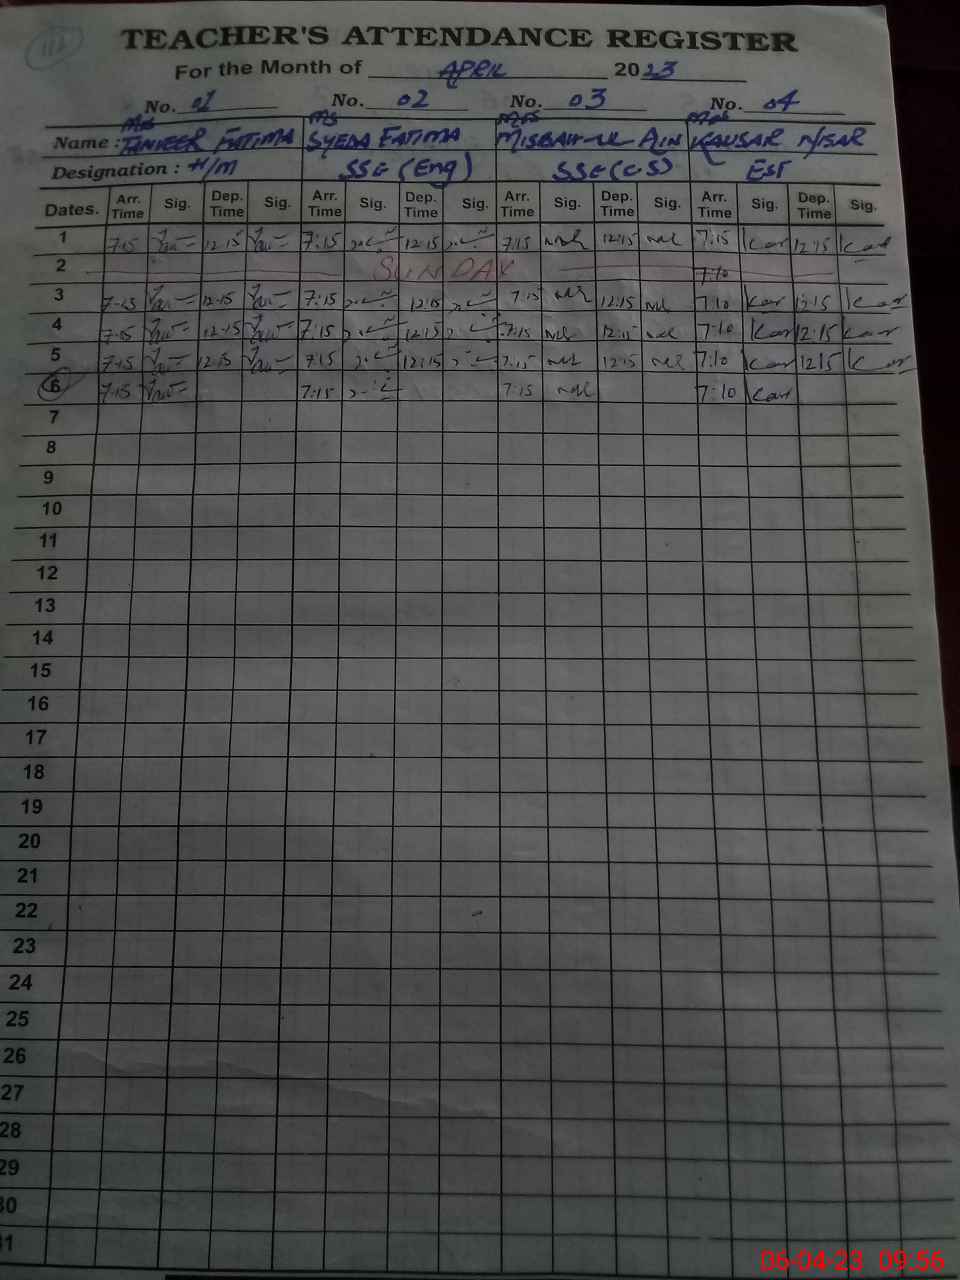 112
TEACHER'S ATTENDANCE REGISTER
For the Month of APRIL 2023
No. 01 No. 02 No. 03 No. 04
Mrs Ms Mrs Mrs
Name : TANKEER FATIMA SYEDA FATIMA MISBAH-UL AIN KAUSAR NISAR
Designation : H/M SSE (Eng) SSE (CS) EST
Dates. Arr. Time Sig. Dep. Time Sig. Arr. Time Sig. Dep. Time Sig. Arr. Time Sig. Dep. Time Sig. Arr. Time Sig. Dep. Time Sig.
1 7-15 12-15 7:15 12:15 7:15 12:15 7:15 Kar 12:15 Kar
2 SUNDAY 7:10
3 7-15 12-15 7:15 12:15 7:15 12:15 7:10 Kar 12:15 Kar
4 7-15 12-15 7:15 12:15 7:15 12:15 7:10 Kar 12:15 Kar
5 7-15 12-15 7:15 12:15 7:15 12:15 7:10 Kar 12:15 Kar
6 7-15 7:15 7:15 7:10 Kar
7
8
9
10
11
12
13
14
15
16
17
18
19
20
21
22
23
24
25
26
27
28
29
30
31
06-04-23 09:56